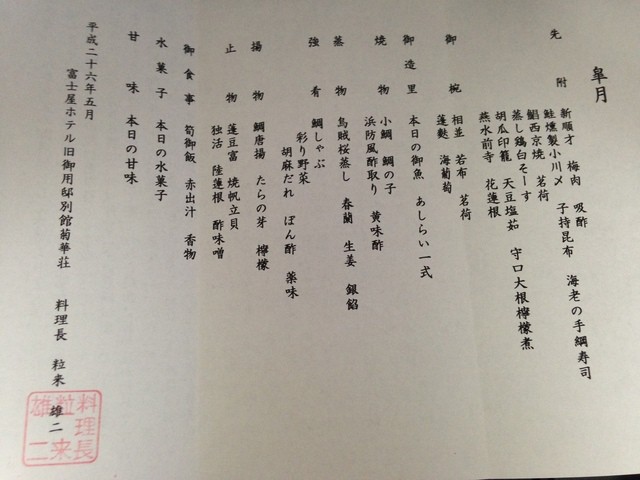 皐月
先附 新順才 梅肉 吸酢
鮭燻製小川〆 子持昆布 海老の手綱寿司
鯧西京焼 茗荷
蒸し鶏白そーす
胡瓜印籠 天豆塩茹 守口大根檸檬煮
燕水前寺 花蓮根
御椀 相並 若布 茗荷
蓬麩 海葡萄
御造里 本日の御魚 あしらい一式
焼物 小鯛 鯛の子
浜防風酢取り 黄味酢
蒸物 烏賊桜蒸し 春蘭 生姜 銀餡
強肴 鯛しゃぶ
彩り野菜
胡麻だれ ぽん酢 薬味
揚物 鯛唐揚 たらの芽 檸檬
止物 蓬豆富 焼帆立貝
独活 陸蓮根 酢味噌
御食事 筍御飯 赤出汁 香物
水菓子 本日の水菓子
甘味 本日の甘味
平成二十六年五月
富士屋ホテル旧御用邸別館菊華荘 料理長 粒来 雄二
料理長
粒来
雄二